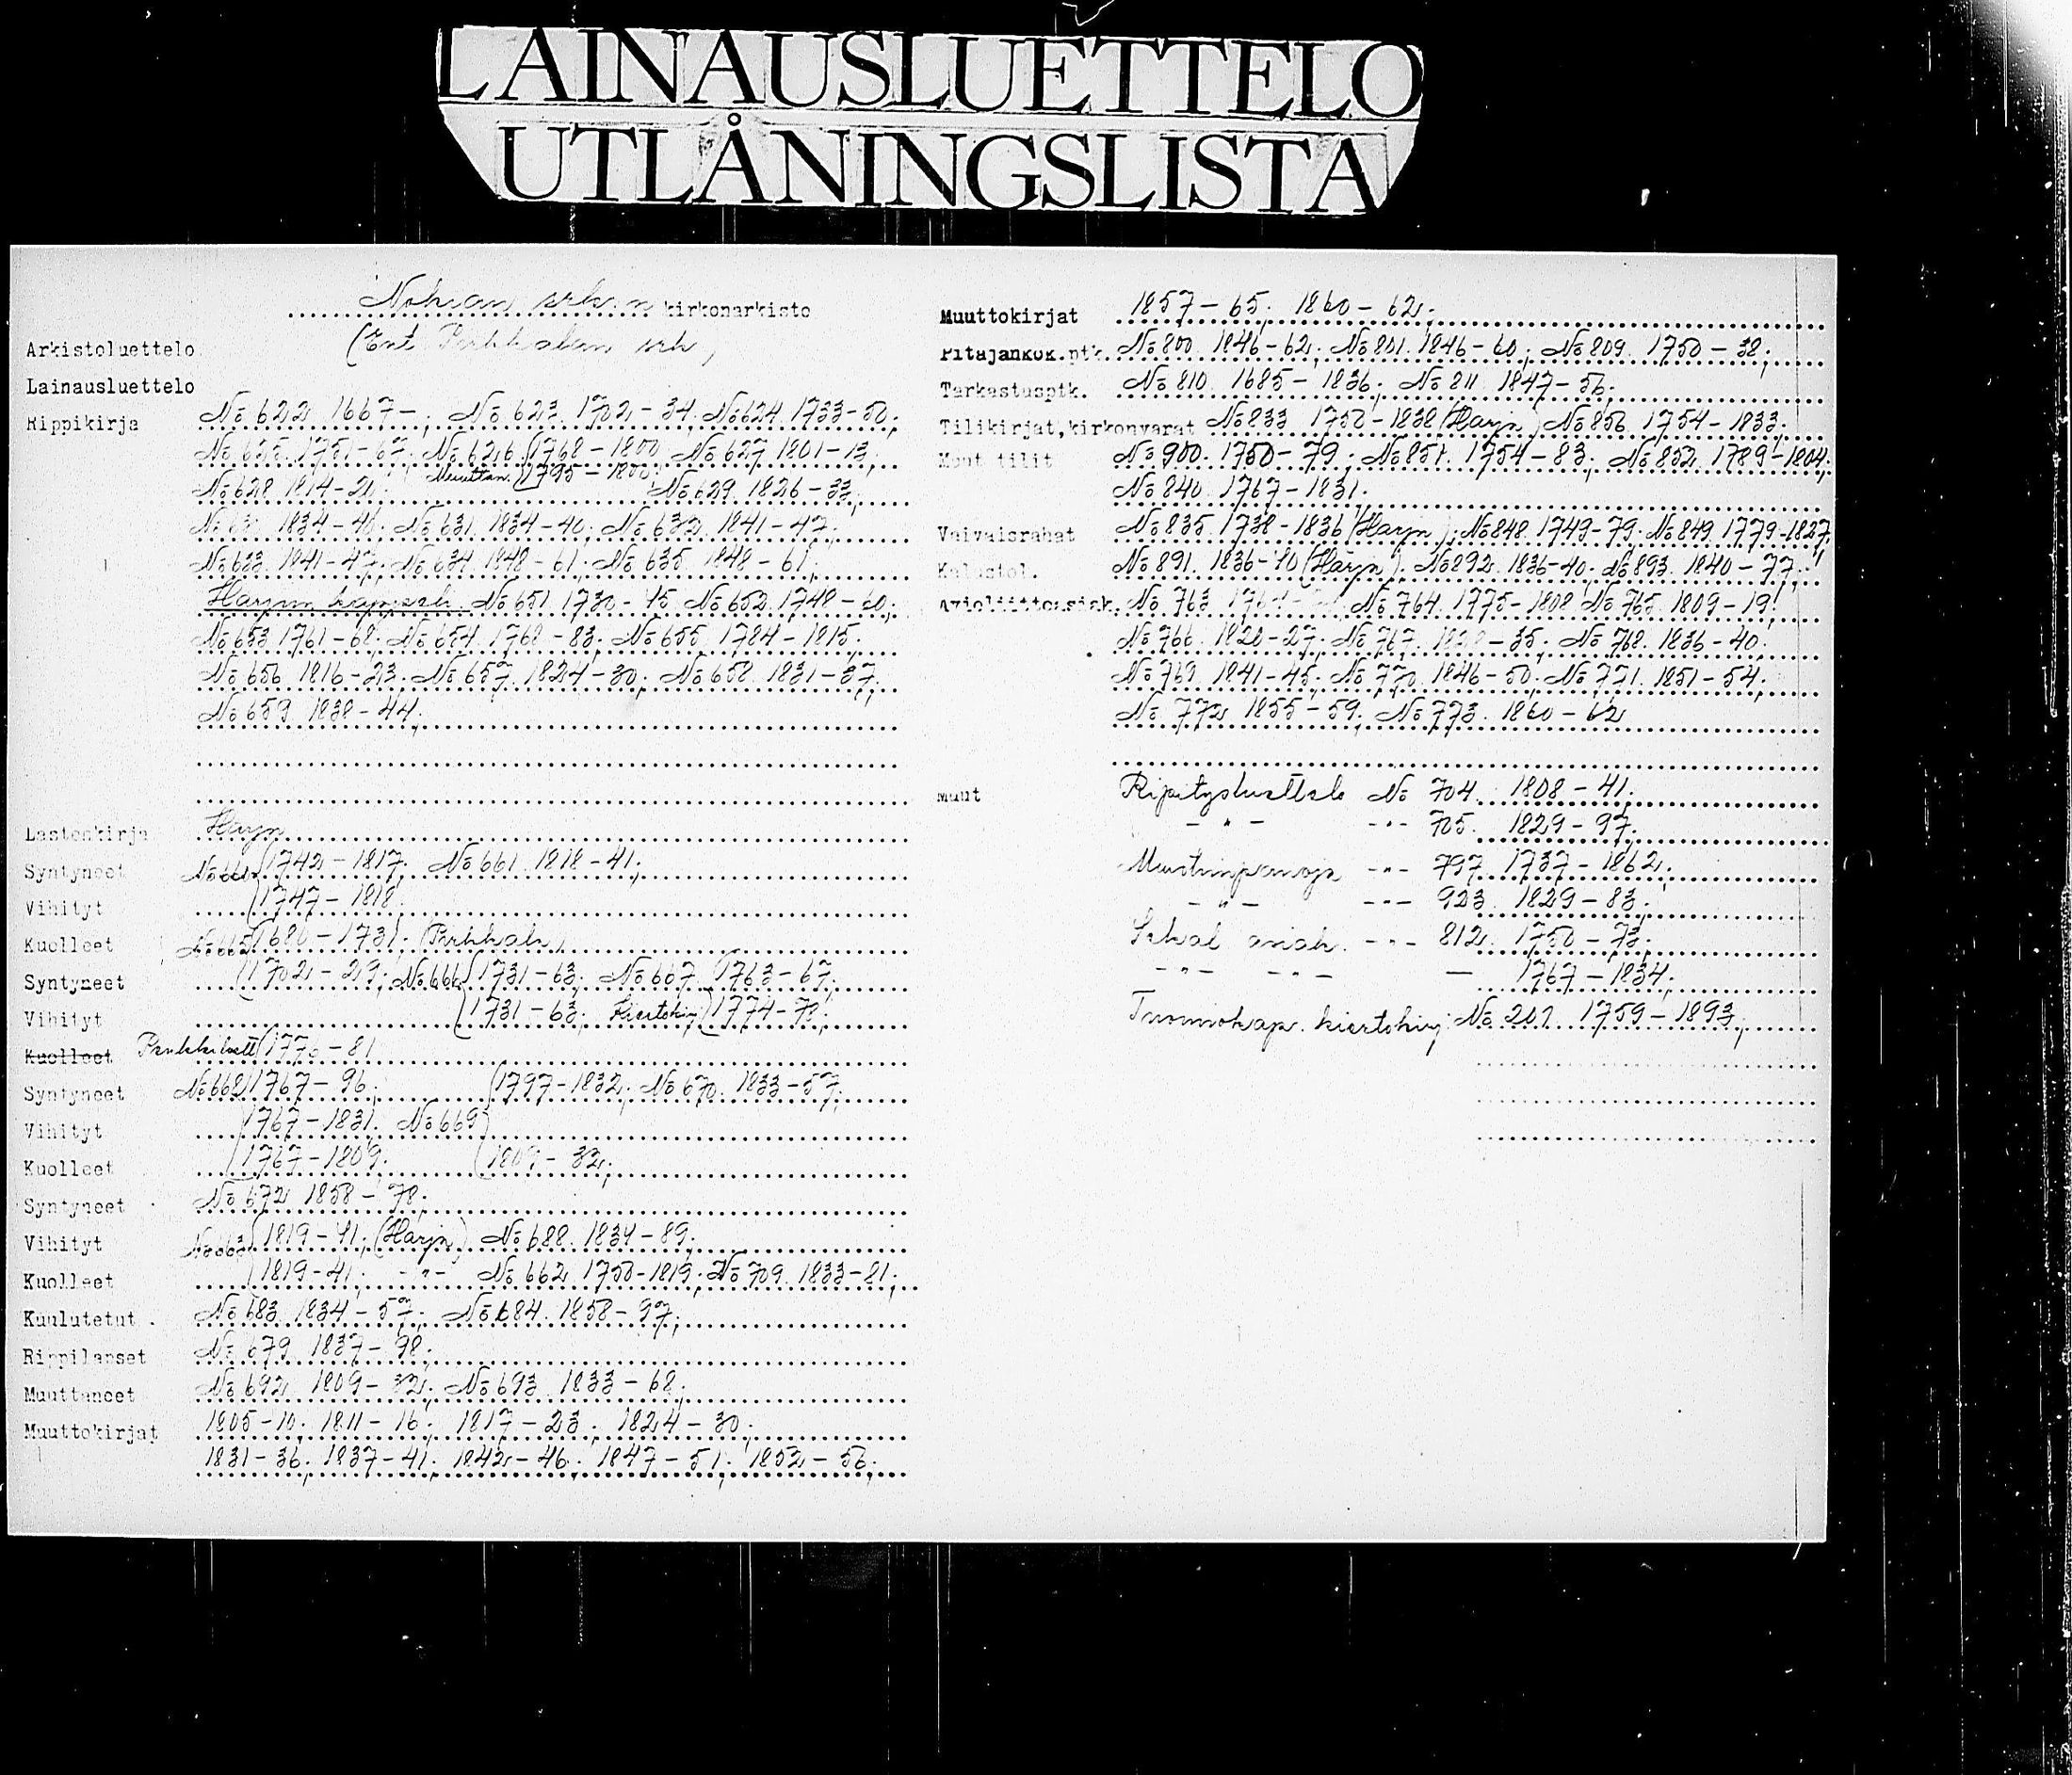 LAINAUSLUETTELO
UTLÅNINGSLISTA
Nokian srk:n kirkonarkisto
(Ent Pirkkalan srk)
Arkistoluettelo
Lainausluettelo
Rippikirja No 622 1667-; No 623 1702-34; No 624 1733-50;
No 625 1751-67; No 626 1768-1800 No 627 1801-13;
Muuttan. 1795-1800;
No 628 1814-21; No 629 1826-33;
1834-40; No 631 1834-40; No 632 1841-47;
No 633 1841-47; No 634 1848-61; No 635 1848-61;
Harjun kapp.srk. No 651 1730-45 No 652 1748-60;
No 653 1761-68; No 654 1768-83; No 655 1784-1815;
No 656 1816-23; No 657 1824-30; No 658 1831-37;
No 659 1838-44;
Lastenkirja Harjn
Syntyneet No 660 1742-1817; No 661 1818-41;
Vihityt 1747-1818
Kuolleet No 665 1686-1731; (Pirkkala)
Syntyneet 1702-29; No 666 1731-63; No 667 1763-67;
Vihityt 1731-63; Kiertokirj 1774-78;
Kuolleet Penkkiluett 1770-81
Syntyneet No 668 1767-96; 1797-1832; No 670 1833-57;
Vihityt 1767-1831; No 669
Kuolleet 1767-1809; 1809-32;
Syntyneet No 672 1858-78;
Vihityt No 663 1819-41; (Harjn) No 688 1834-89;
Kuolleet 1819-41; -"- No 662 1750-1819; No 709 1833-81;
Kuulutetut No 683 1834-57; No 684 1858-97;
Rippilapset No 679 1837-98;
Muuttaneet No 692 1809-32; No 693 1833-68;
Muuttokirjat 1805-10; 1811-16; 1817-23; 1824-30;
1831-36; 1837-41; 1842-46; 1847-51; 1852-56;
Muuttokirjat 1857-65; 1860-62;
Pitäjänkok.ptk. No 800 1846-62; No 801 1846-60; No 809 1750-38;
Tarkastusptk. No 810 1685-1836; No 811 1847-56;
Tilikirjat, kirkonvarat No 833 1750-1838 (Harjn) No 850 1754-1833;
Muut tilit No 900 1750-79; No 851 1754-83; No 852 1789-1804;
No 840 1767-1831;
Vaivaisrahat No 835 1738-1836 (Harjn); No 848 1749-79; No 849 1779-1827;
Kalustol. No 891 1836-40 (Harjn); No 892 1836-40; No 893 1840-77;
Avioliittoasiak. No 763 No 764 1775-1808 No 765 1809-19;
No 766 1820-27; No 767 1828-35; No 768 1836-40;
No 769 1841-45; No 770 1846-50; No 771 1851-54;
No 772 1855-59; No 773 1860-62
Muut Ripitysluettelo No 704 1808-41;
-"- -"- 705 1829-97;
Muistiinpanoja -"- 797 1737-1862;
-"- -"- 923 1829-83;
Sekal asiak. -"- 812 1750-73;
-"- -"- - 1767-1834;
Tuomiokap. kiertokirj No 201 1759-1893;